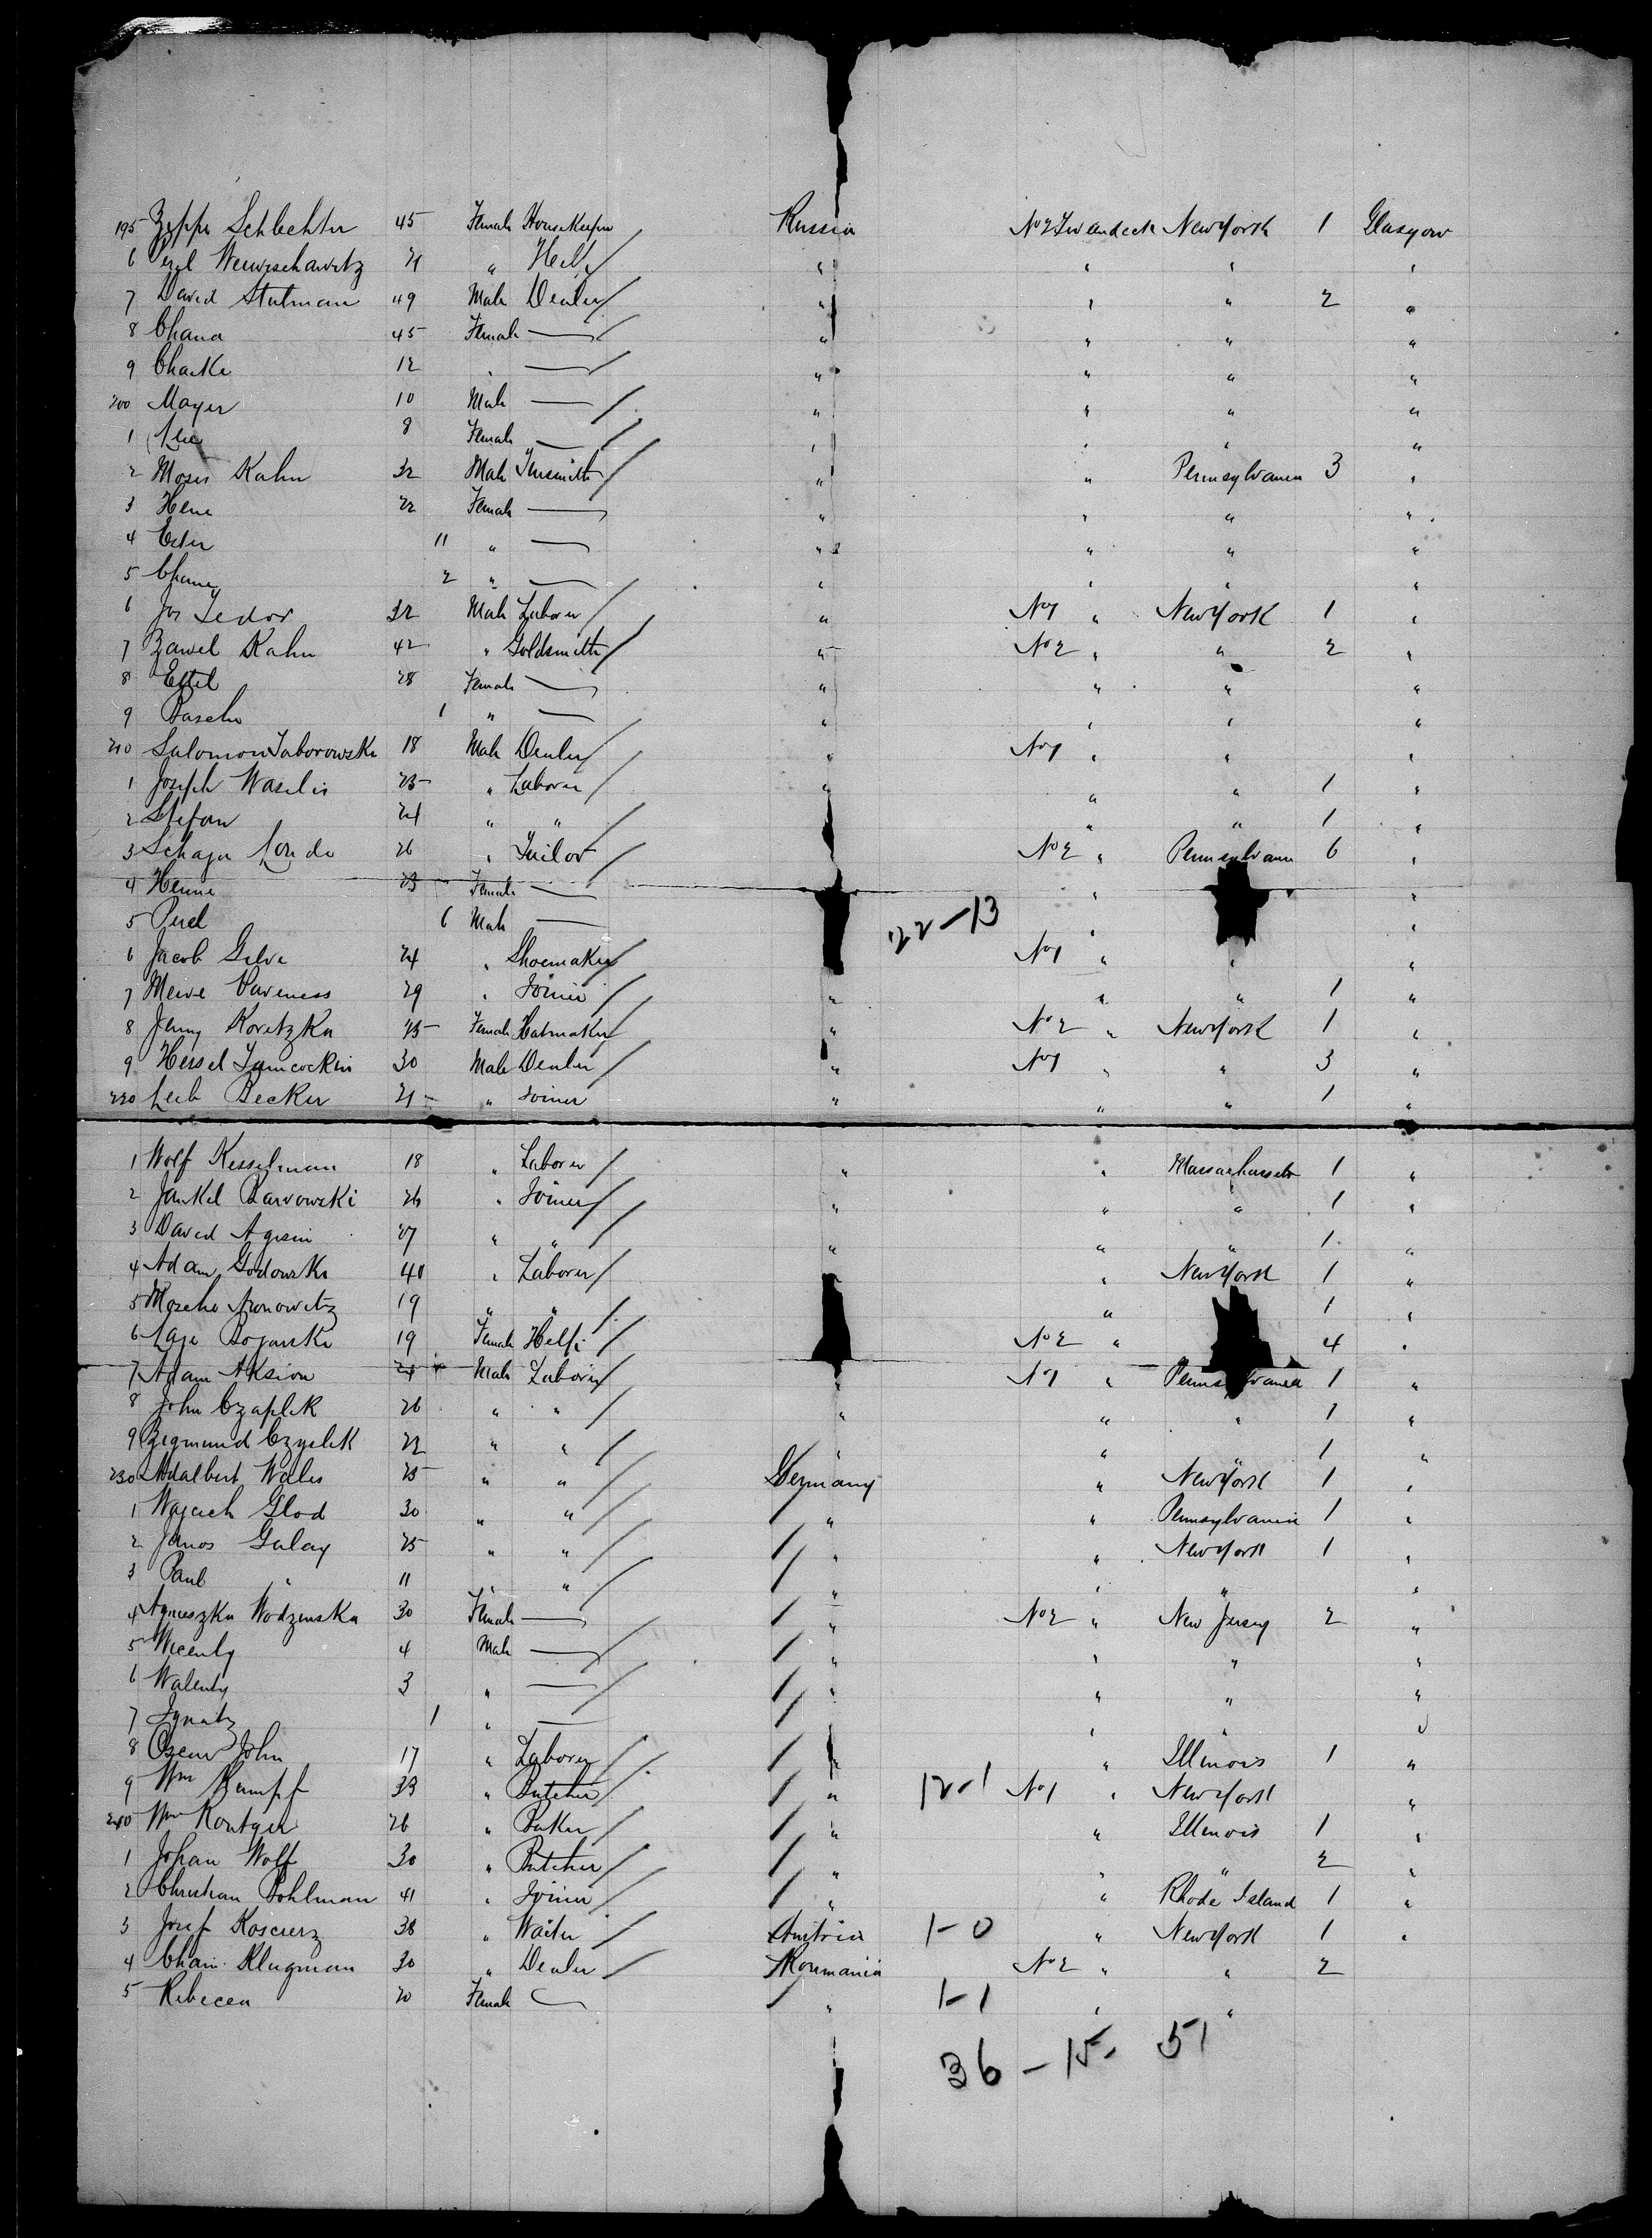 195 Zippe Schlechter 45 Female Housekeeper Russia No 2 Tweendeck New York 1 Glasgow
6 21 " Help " " " "
7 David Stutman 49 Male Dealer " " " 2 "
8 Chana 45 Female — " " " "
9 Chaike 12 " — " " " "
200 Mayer 10 Male — " " " "
1 8 Female — " " " "
2 Moses Kahn 32 Male Tinsmith " " Pennsylvania 3 "
3 Hene 22 Female — " " " "
4 Ester 11 " — " " " "
5 Chane 2 " — " " " "
6 Jos Fedor 32 Male Laborer " No 1 " New York 1 "
7 Zawel Kahn 42 " Goldsmith " No 2 " " 2 "
8 Ettel 28 Female — " " " "
9 Basche 1 " — " " " "
210 Salomon Taborowski 18 Male Dealer " No 1 " " "
1 Joseph Waselis 25 " Laborer " " " 1 "
2 Stefan 24 " " " " 1 "
3 Schaja 26 " Tailor No 2 " Pennsylvania 6 "
4 Henne 23 Female — " "
5 Perel 6 Male — 22-13 " "
6 Jacob Gelve 24 " Shoemaker No 1 " " "
7 Meive Vaveness 29 " Joiner " " " 1 "
8 Jenny Koretzka 25 Female Hatmaker " No 2 " New York 1 "
9 Hersel 30 Male Dealer " No 1 " " 3 "
220 Leib Becker 21 " Joiner " " " 1 "
1 Wolf Kesselman 18 " Laborer " " Massachusets 1 "
2 Jankel Barvowski 26 " Joiner " " " 1 "
3 David Agisin 27 " " " " " 1 "
4 Adam Godowski 40 " Laborer " New York 1 "
5 Mosche Aronowitz 19 " " " 1 "
6 Laje Bojarski 19 Female Help No 2 " 4 "
7 Adam Aksion 24 Male Laborer " No 1 " Pennsylvania 1 "
8 John Czaplik 26 " " " " " 1 "
9 Zegmund Czyelik 22 " " " " " 1 "
230 Adalbert Wales 25 " " Germany " New York 1 "
1 Wojciech Glod 30 " " " " Pennsylvania 1 "
2 Janos Galay 25 " " " " New York 1 "
3 Paul " 11 " " " " " "
4 Agnieszka Wodzenska 30 Female — " No 2 " New Jersey 2 "
5 Wicenty 4 Male — " " " "
6 Walenty 3 " — " " " "
7 Ignatz 1 " — " " " "
8 John 17 " Laborer " " Illinois 1 "
9 Wm Kumpf 33 " Butcher " 12-1 No 1 " New York "
240 Wm Rontger 26 " Baker " " Illinois 1 "
1 Johan Wolf 30 " Butcher " " " 2 "
2 Christian Pohlman 41 " Joiner " " Rhode Island 1 "
3 Josef Koscierz 38 " Waiter Austria 1-0 " New York 1 "
4 Chaim Klugman 30 " Dealer Roumania No 2 " " 2
5 Rebecca 20 Female — " 1-1 " "
36 - 15 - 51